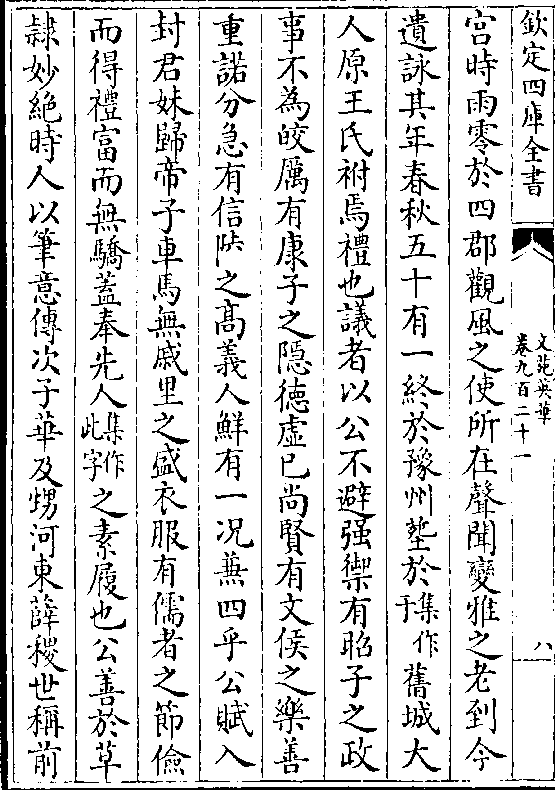 欽定四庫全書
文苑英華
卷九百二十一
八
宫時雨零於四郡觀風之使所在聲聞變雅之老到今
遺詠其年春秋五十有一終於豫州塟於集作于舊城大
人原王氏祔焉禮也議者以公不避强禦有昭子之政
事不為皎厲有康子之隠徳虚已尚賢有文侯之樂善
重諾分急有信陕之髙義人鮮有一况蕪四乎公賦入
封君妹歸帝子車馬無戚里之盛衣服有儒者之節儉
而得禮富而無驕蓋奉先人集作此字之素履也公善於草
隷妙絶時人以筆意傳次子華及甥河東薛稷世稱前